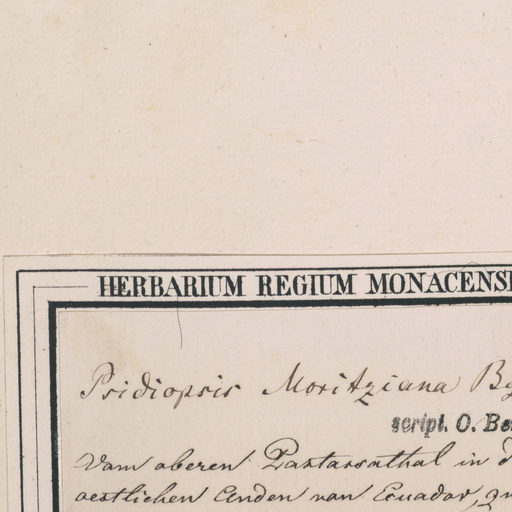 HERBARIUM REGIUM MONACENS
Psidiopsis Moritziana B
script. O. Be
Vom oberen Pastassathal in d
oestlichen Anden von Ecuador, zw